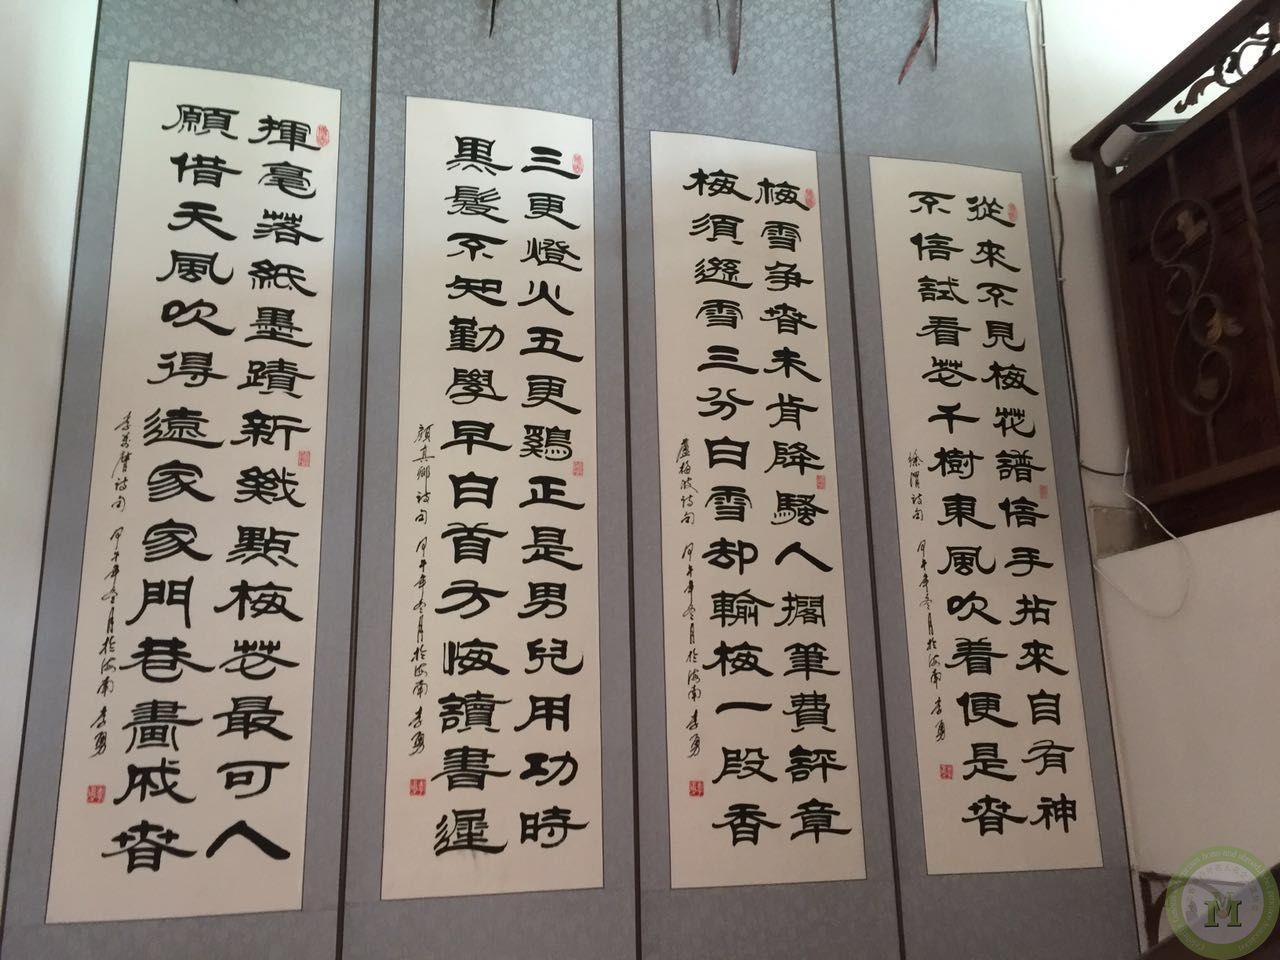 從來不見梅花譜信手拈來自有神
不信試看花千樹東風吹着便是春
徐渭詩句 甲午年冬月於海南 李勇
梅雪爭春未肯降騷人擱筆費評章
梅須遜雪三分白雪却輸梅一段香
盧梅坡詩句 甲午年冬月於海南 李勇
三更燈火五更鷄正是男兒用功時
黑髮不知勤學早白首方悔讀書遲
顏真卿詩句 甲午年冬月於海南 李勇
揮毫落紙墨蹟新幾點梅花最可人
願借天風吹得遠家家門巷盡成春
李方膺詩句 甲午年冬月於海南 李勇
M